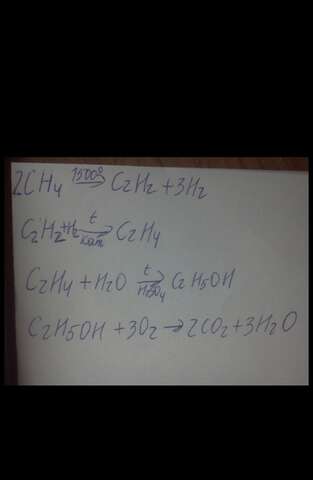 2CH4 1500° → C2H2 + 3H2
C2H2 + H2 t кат → C2H4
C2H4 + H2O t H2SO4 → C2H5OH
C2H5OH + 3O2 → 2CO2 + 3H2O